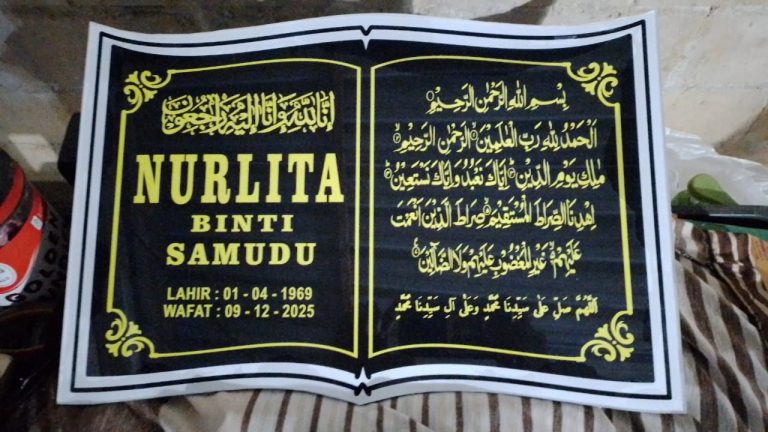 إنا لله وإنا إليه راجعون
NURLITA
BINTI
SAMUDU
LAHIR : 01 - 04 - 1969
WAFAT : 09 - 12 - 2025
بِسْمِ اللهِ الرَّحْمٰنِ الرَّحِيْمِ
اَلْحَمْدُ لِلّٰهِ رَبِّ الْعٰلَمِيْنَ الرَّحْمٰنِ الرَّحِيْمِ
مٰلِكِ يَوْمِ الدِّيْنِ اِيَّاكَ نَعْبُدُ وَاِيَّاكَ نَسْتَعِيْنُ
اِهْدِنَا الصِّرَاطَ الْمُسْتَقِيْمَ صِرَاطَ الَّذِيْنَ اَنْعَمْتَ
عَلَيْهِمْ غَيْرِ الْمَغْضُوْبِ عَلَيْهِمْ وَلَا الضَّاۤلِّيْنَ
اَللّٰهُمَّ صَلِّ عَلٰى سَيِّدِنَا مُحَمَّدٍ وَعَلٰى آلِ سَيِّدِنَا مُحَمَّدٍ
GOLDEN